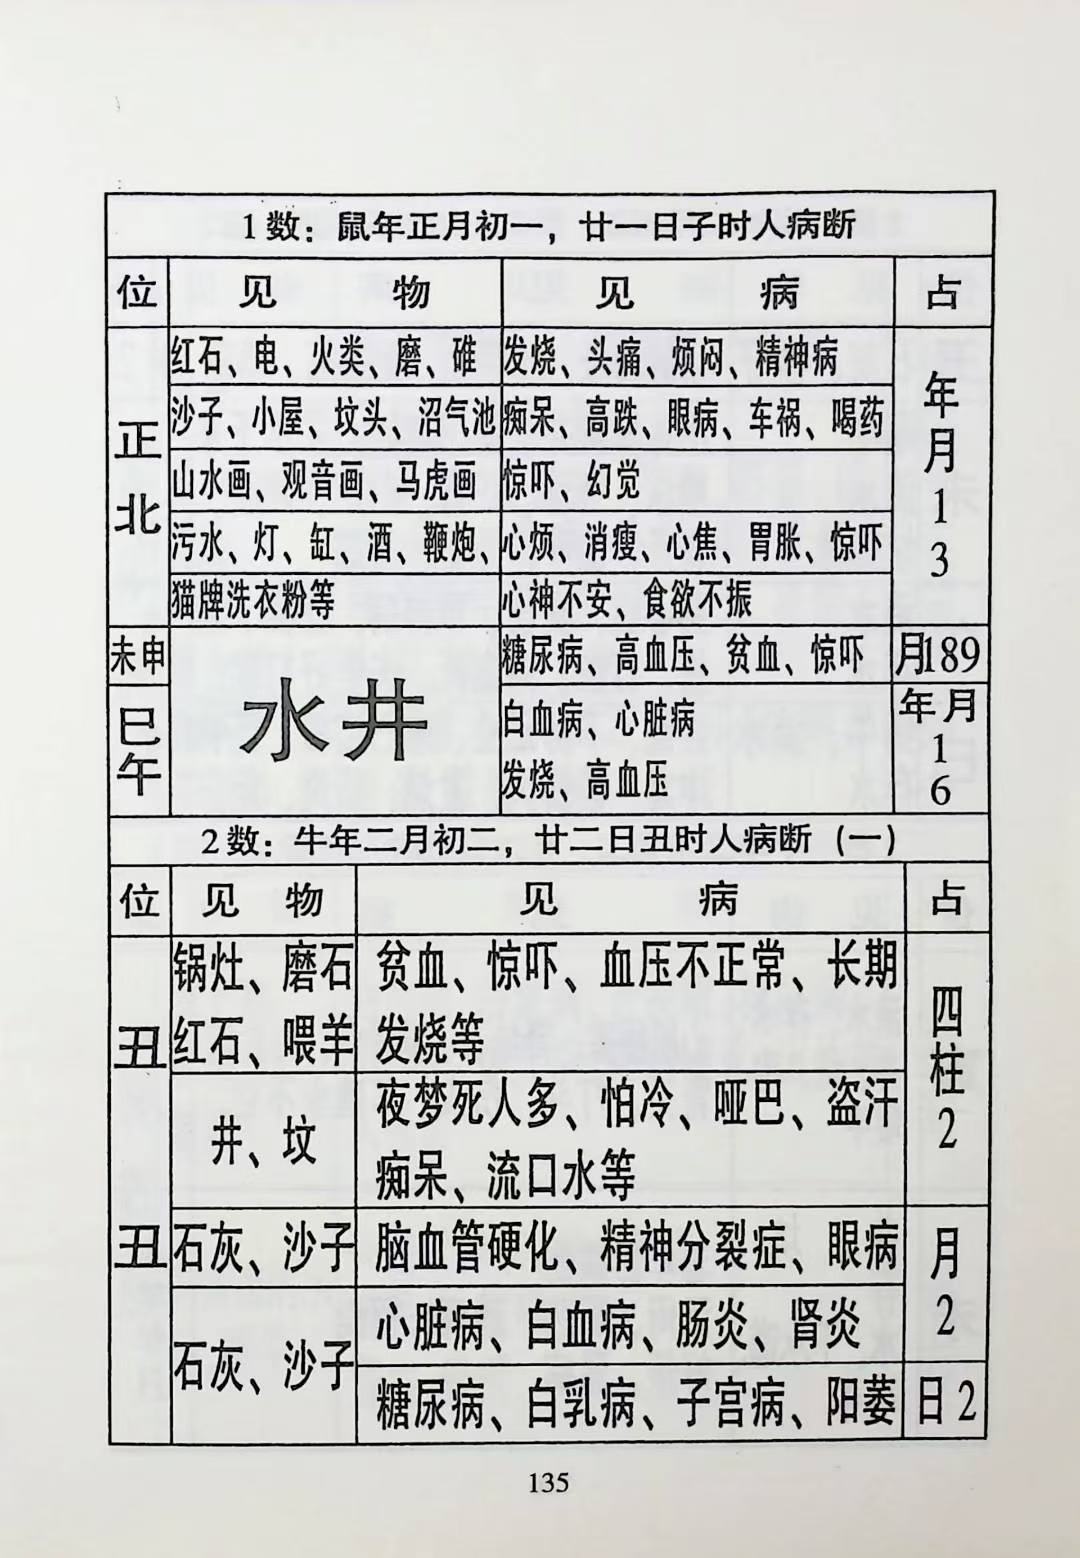 1数：鼠年正月初一，廿一日子时人病断
位 见 物 见 病 占
正北 红石、电、火类、磨、碓 发烧、头痛、烦闷、精神病 年月13
沙子、小屋、坟头、沼气池 痴呆、高跌、眼病、车祸、喝药
山水画、观音画、马虎画 惊吓、幻觉
污水、灯、缸、酒、鞭炮、 心烦、消瘦、心焦、胃胀、惊吓
猫牌洗衣粉等 心神不安、食欲不振
未申 水井 糖尿病、高血压、贫血、惊吓 月189
巳午 白血病、心脏病 年月16
发烧、高血压
2数：牛年二月初二，廿二日丑时人病断（一）
位 见 物 见 病 占
丑 锅灶、磨石 贫血、惊吓、血压不正常、长期 四柱2
红石、喂羊 发烧等
井、坟 夜梦死人多、怕冷、哑巴、盗汗
痴呆、流口水等
丑 石灰、沙子 脑血管硬化、精神分裂症、眼病 月2
石灰、沙子 心脏病、白血病、肠炎、肾炎
糖尿病、白乳病、子宫病、阳萎 日2
135